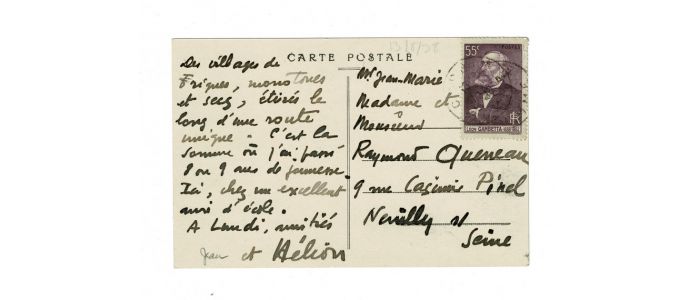 13/8/38
CARTE POSTALE
Des villages de
briques, monotones
et secs, étirés le
long d'une route
unique. C'est la
Somme où j'ai passé
8 ou 9 ans de jeunesse.
Ici, chez un excellent
ami d'école.
A Lundi, amitiés
Jean et Hélion
55c
POSTES
LÉON GAMBETTA
RF
Mr Jean-Marie
Madame et
Monsieur
Raymond Queneau
9 rue Casimir Pinel
Neuilly s/
Seine